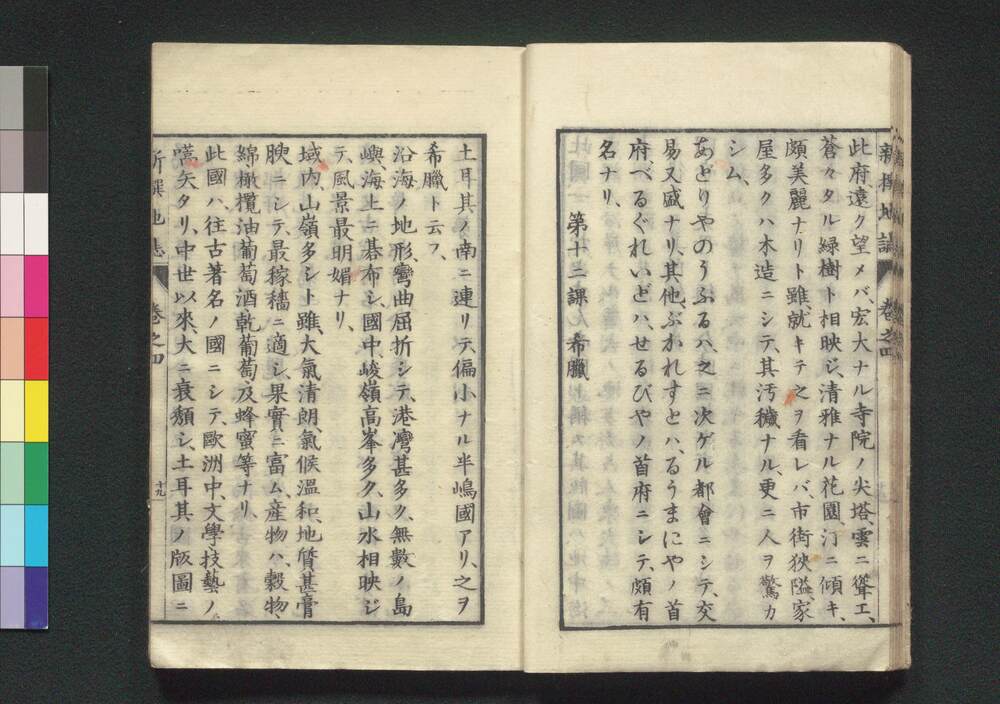 新撰地誌 卷之四
此府遠ク望メバ、宏大ナル寺院ノ尖塔、雲ニ聳エ、
蒼々タル綠樹ト相映ジ、清雅ナル花園、汀ニ傾キ、
頗美麗ナリト雖、就キテ之ヲ看レバ、市街狹隘、家
屋多クハ木造ニシテ、其汚穢ナル、更ニ人ヲ驚カ
シム、
あどりやのうぷるハ、之ニ次ゲル都會ニシテ、交
易又盛ナリ、其他、ぶかれすとハ、るうまにやノ首
府、べるぐれいどハ、せるびやノ首府ニシテ、頗有
名ナリ、
第十三課 希臘
土耳其ノ南ニ連リテ偏小ナル半嶋國アリ、之ヲ
希臘ト云フ、
沿海ノ地形彎曲屈折シテ、港灣甚多ク、無數ノ島
嶼、海上ニ碁布シ、國中、峻嶺高峯多ク、山水相映ジ
テ、風景最明媚ナリ、
域内、山嶺多シト雖、大氣清朗、氣候溫和、地質甚膏
腴ニシテ、最稼穡ニ適シ、果實ニ富ム、産物ハ、穀物、
綿、橄欖油、葡萄酒、乾葡萄、及蜂蜜等ナリ、
此國ハ、往古著名ノ國ニシテ、歐洲中、文學技藝ノ
嚆矢タリ、中世以來、大ニ衰頽シ、土耳其ノ版圖ニ
新撰地誌 卷之四 十九